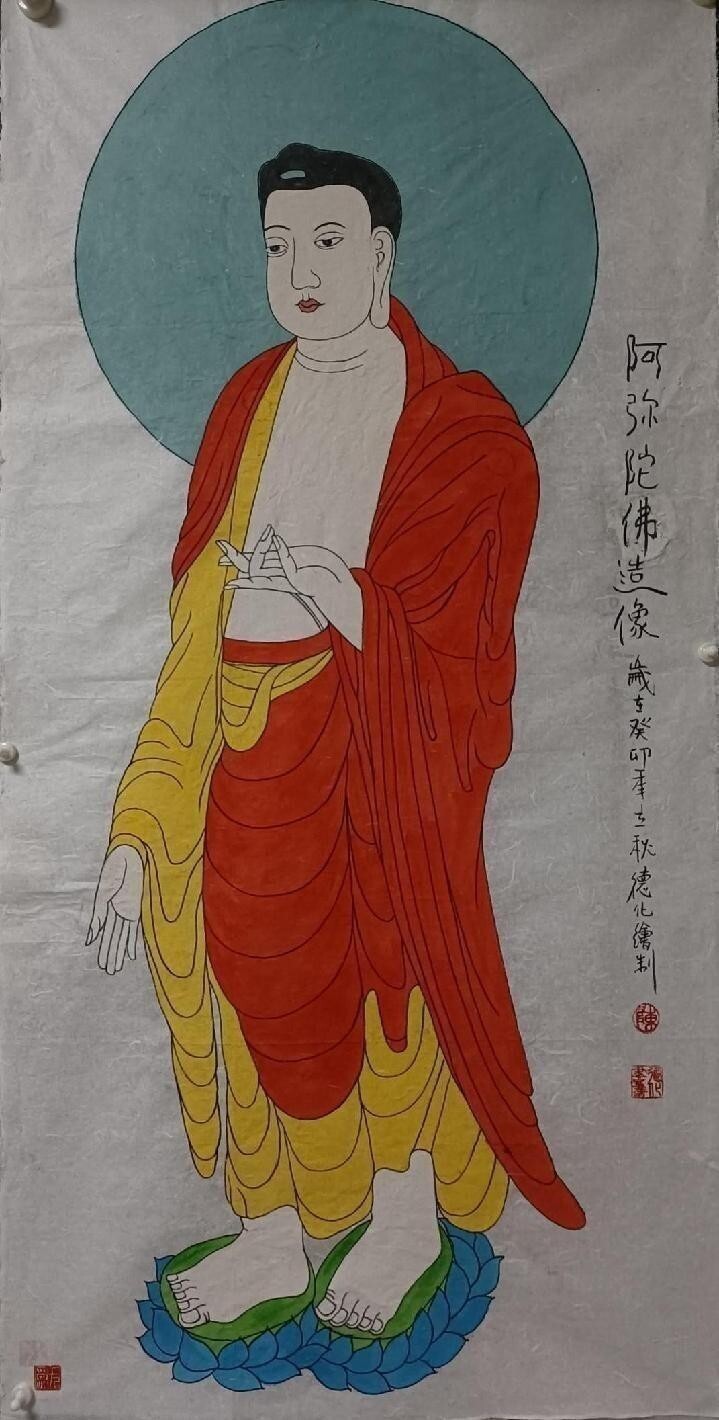 阿弥陀佛造像
歲在癸卯年立秋德化繪制
陳